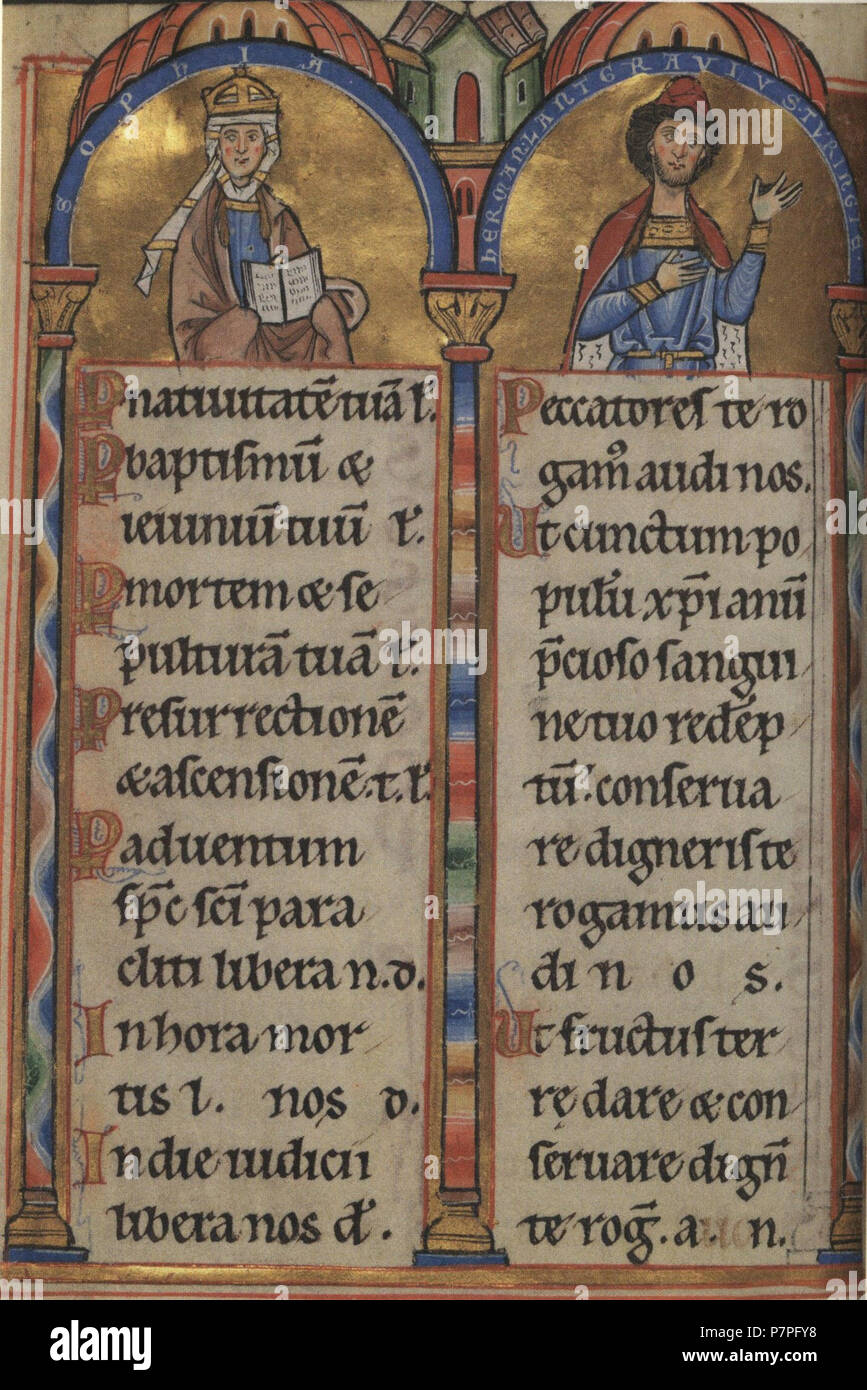 SOPHIA
HERMAN. LANTGRAVIVS. TVRINGIE.
P nativitatē tuā l̄.
P baptismū &
ieiuniū tuū l̄.
P mortem & se
pulturā tuā l̄.
P resurrectionē
& ascensionē. t. l̄.
P adventum
sp̄c sc̄i para
cliti libera n. d.
In hora mor
tis l. nos d.
In die iudicii
libera nos d̄.
Peccatores te ro
gam⁹ audi nos.
Ut cunctum po
pulū xp̄ianū
p̄cioso sangui
ne tuo redēp
tū. conserva
re digneris te
rogamus au
di n o s.
Ut fructus ter
rę dare & con
servare dign̄
te roḡ. a. n.
alamy
Image ID: 7P7PFY8
www.alamy.com